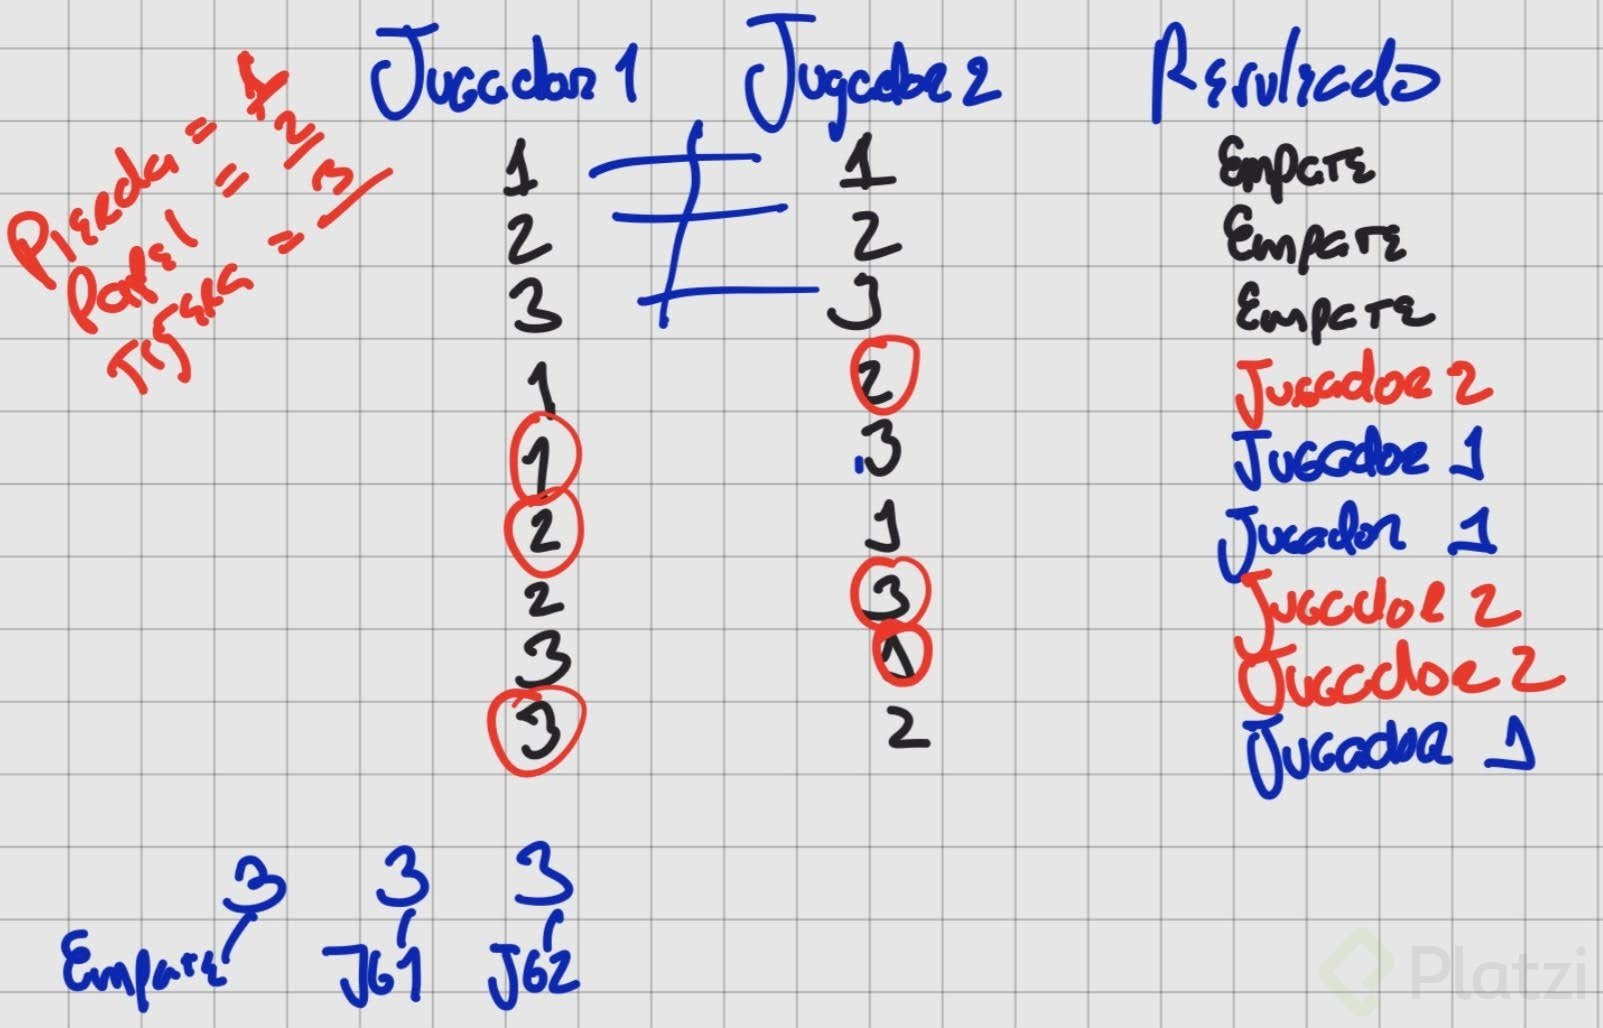 Piedra = 1
Papel = 2
Tijera = 3
Jugador 1 Jugador 2 Resultado
1 1 Empate
2 2 Empate
3 3 Empate
1 2 Jugador 2
1 3 Jugador 1
2 1 Jugador 1
2 3 Jugador 2
3 1 Jugador 2
3 2 Jugador 1
3 3 3
Empate JG1 JG2
Platzi